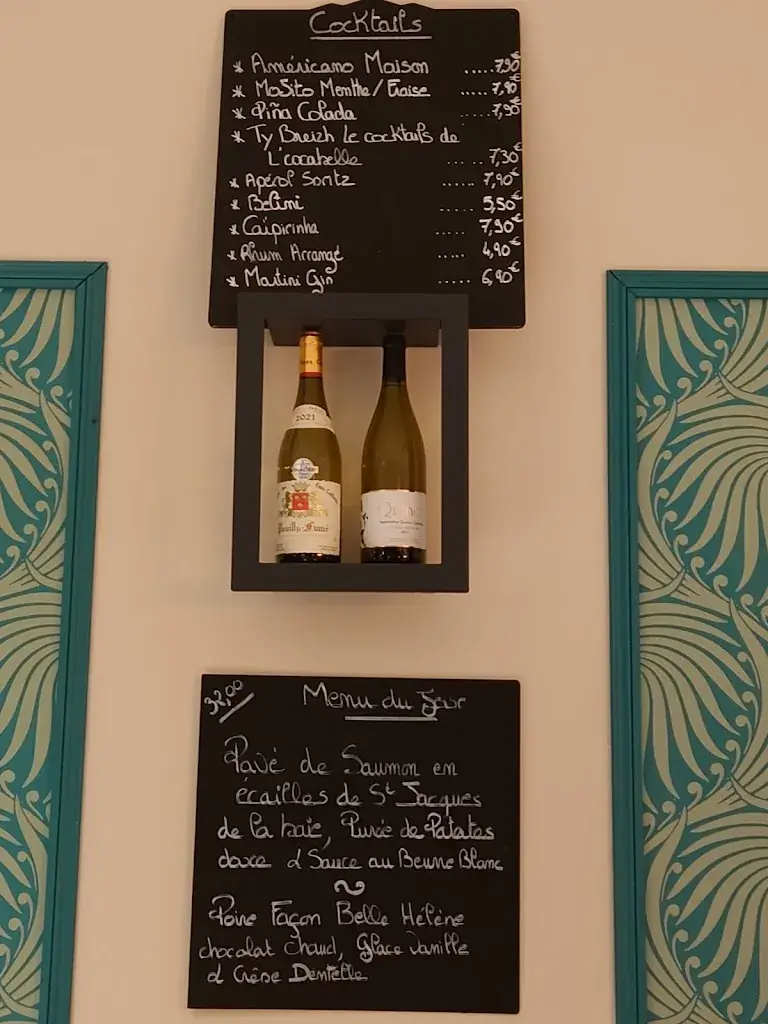 Cocktails
* Américano Maison ..... 7,90€
* Mojito Menthe/Fraise ..... 7,90€
* Piña Colada ..... 7,90€
* Ty Breizh le cocktails de
L'cocabelle ..... 7,30€
* Apérol Spritz ...... 7,90€
* Belini ..... 5,50€
* Caïpirinha ..... 7,90€
* Rhum Arrangé ..... 4,90€
* Martini Gin ..... 6,90€
2021
Pouilly-Fumé
Quincy
32,00
Menu du Jour
Pavé de Saumon en
écailles de St Jacques
de la baie, Purée de Patates
douce & Sauce au Beurre Blanc
~
Poire Façon Belle Hélène
chocolat chaud, Glace Vanille
& Crêpe Dentelle